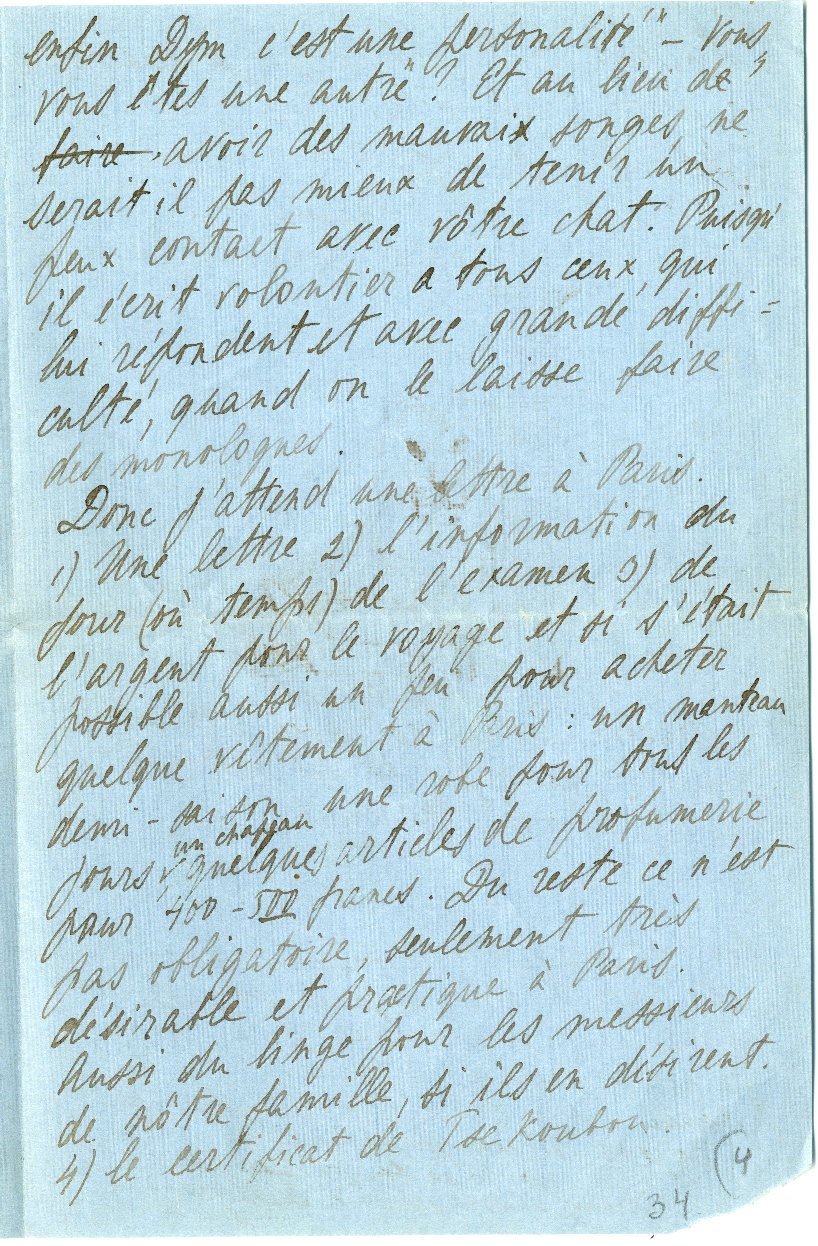 enfin Dym c'est une personalité" – Vous,
vous êtes une autre"? Et au lieu de"
faire, avoir des mauvaix songes, ne
serait il pas mieux de tenir un
peux contact avec vôtre chat. Puisqu'
il écrit volontier a tous ceux, qui
lui répondent et avec grande diffi=
culté, quand on le laisse faire
des monologues.
Donc j'attend une lettre à Paris.
1) Une lettre 2) l'information du
jour (où temps) de l'examen 3) de
l'argent pour le voyage et si s'était
possible aussi un peu pour acheter
quelque vêtement à Paris: un manteau
demi-saison une robe pour tous les
un chapeau
jours, quelques articles de profumerie
pour 400-500 francs. Du reste ce n'est
pas obligatoire, seulement très
désirable et practique à Paris.
Aussi du linge pour les messieurs
de nôtre famille, si ils en désirent.
4) le certificat de Tsekoubou.
34 (4